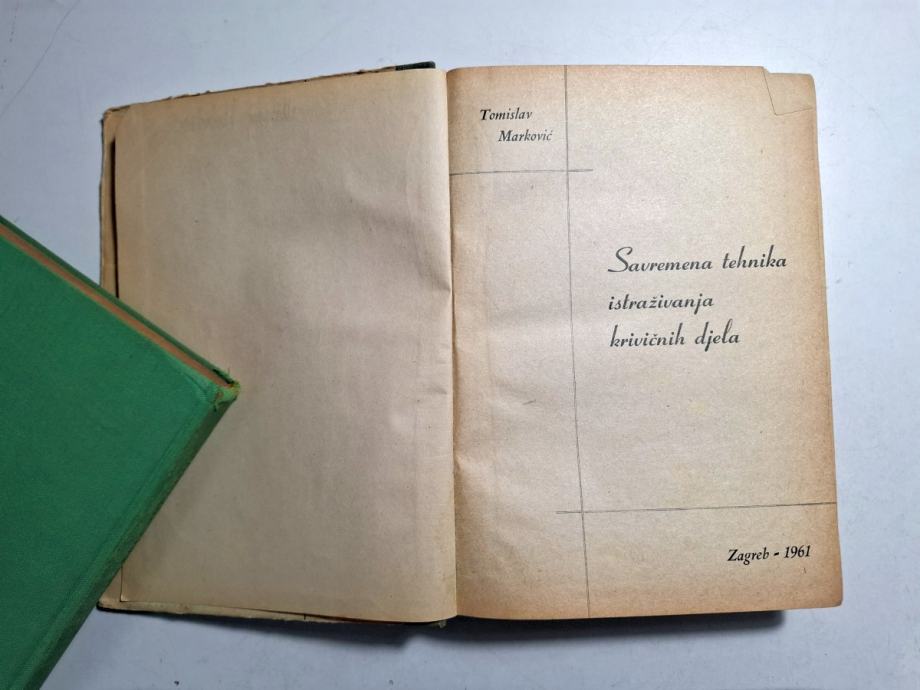 Tomislav
Marković
Savremena tehnika
istraživanja
krivičnih djela
Zagreb - 1961